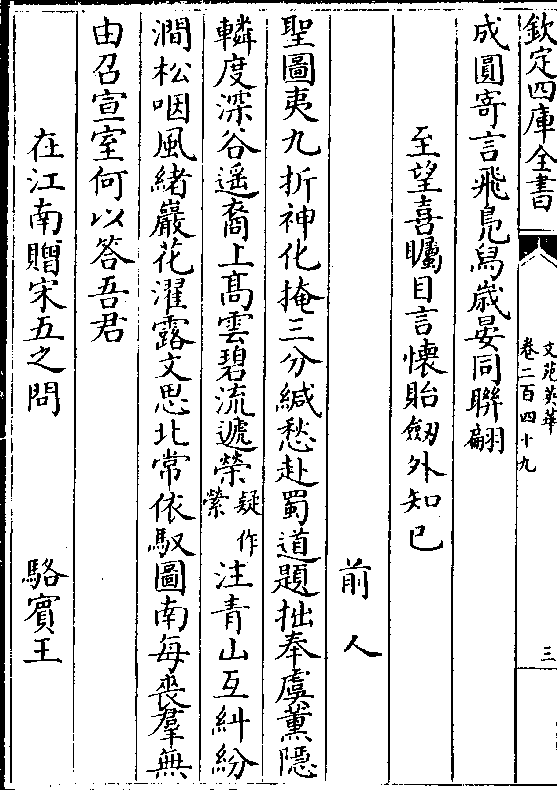 欽定四庫全書
文苑英華
卷二百四十九
三
成圓寄言飛鳧舄歳晏同聯翩
至望喜矚目言懷貽劒外知已
前人
聖圖夷九折神化掩三分緘愁赴蜀道題拙奉虞薫隠
轔度深谷遥裔上髙雲碧流遞縈疑作縈注青山互糾紛
澗松咽風緒巖花濯露文思北常依馭圖南每喪羣無
由召宣室何以答吾君
在江南贈宋五之問
駱賓王